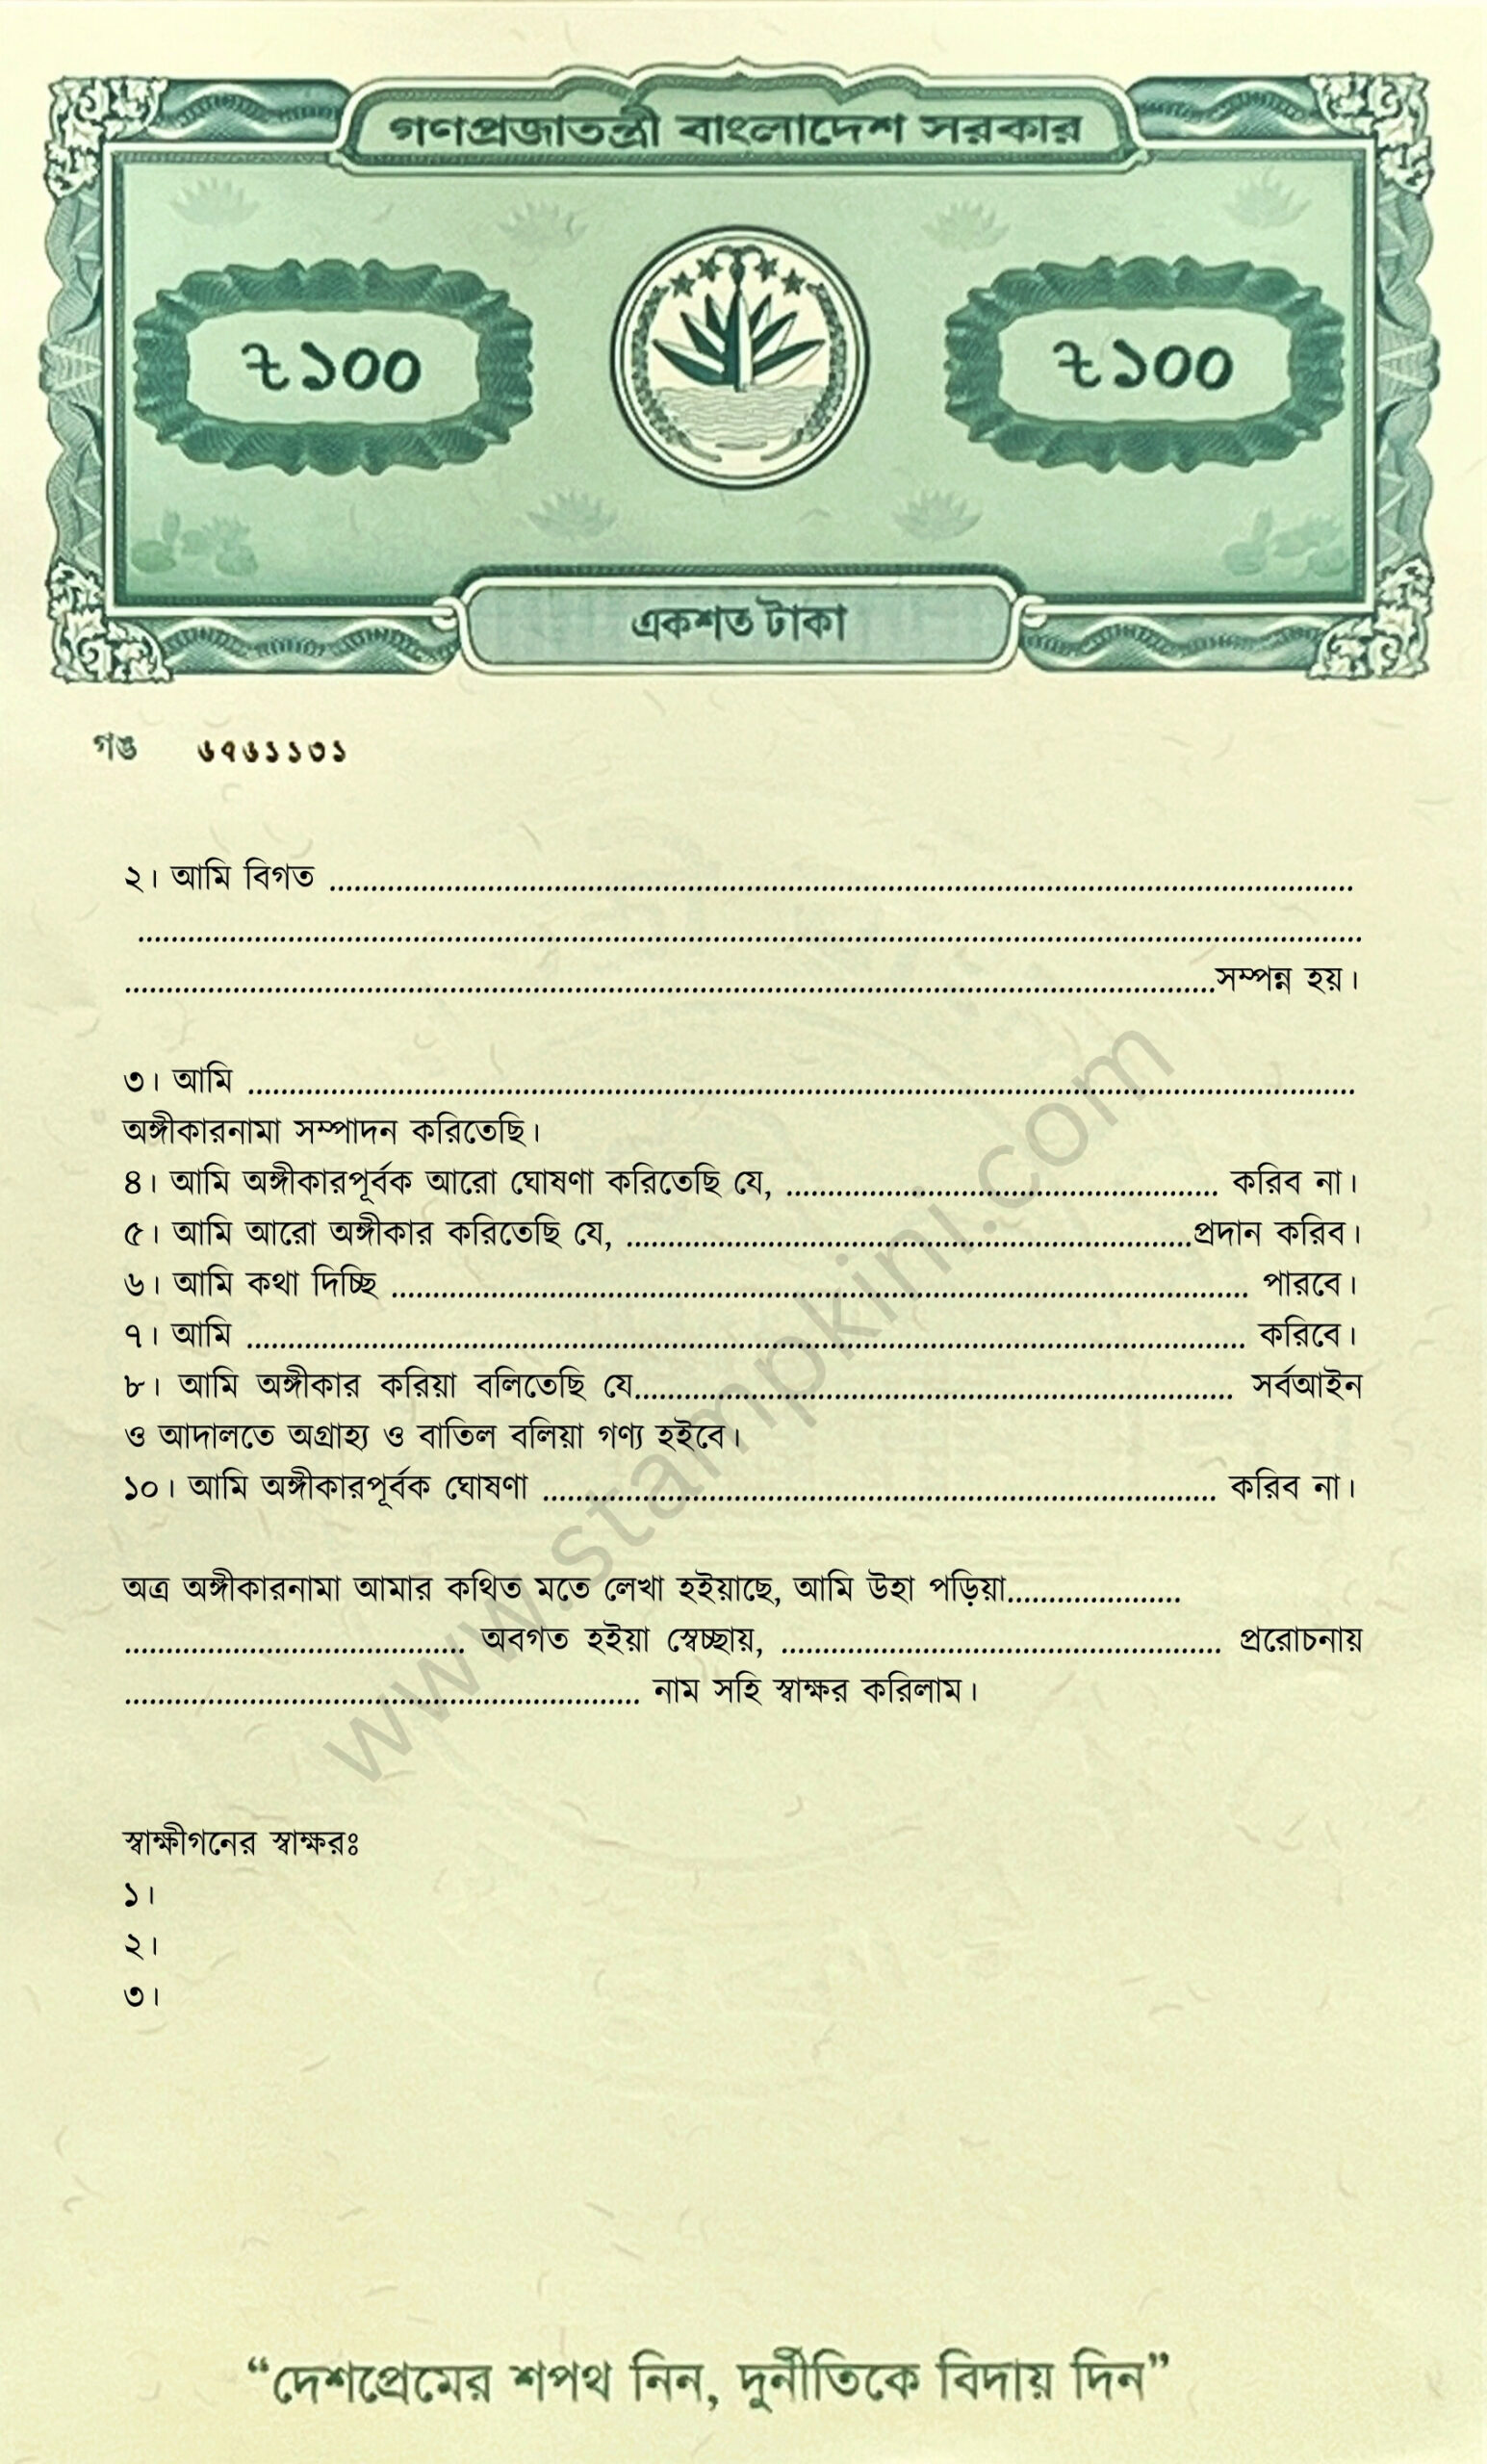 গণপ্রজাতন্ত্রী বাংলাদেশ সরকার
৳ ১০০
৳ ১০০
একশত টাকা
গঙ ৬৭৬১১৩১
২। আমি বিগত ........................................................................................................................
........................................................................................................................
........................................................................................................................সম্পন্ন হয়।
৩। আমি ........................................................................................................................
অঙ্গীকারনামা সম্পাদন করিতেছি।
৪। আমি অঙ্গীকারপূর্বক আরো ঘোষণা করিতেছি যে, .................................................... করিব না।
৫। আমি আরো অঙ্গীকার করিতেছি যে, ....................................................................প্রদান করিব।
৬। আমি কথা দিচ্ছি ....................................................................................................... পারবে।
৭। আমি ........................................................................................................................ করিবে।
৮। আমি অঙ্গীকার করিয়া বলিতেছি যে........................................................................ সর্বআইন
ও আদালতে অগ্রাহ্য ও বাতিল বলিয়া গণ্য হইবে।
১০। আমি অঙ্গীকারপূর্বক ঘোষণা ................................................................................. করিব না।
অত্র অঙ্গীকারনামা আমার কথিত মতে লেখা হইয়াছে, আমি উহা পড়িয়া.....................
......................................... অবগত হইয়া স্বেচ্ছায়, ..................................................... প্ররোচনায়
.............................................................. নাম সহি স্বাক্ষর করিলাম।
www.stampkini.com
স্বাক্ষীগনের স্বাক্ষরঃ
১।
২।
৩।
“দেশপ্রেমের শপথ নিন, দুর্নীতিকে বিদায় দিন”